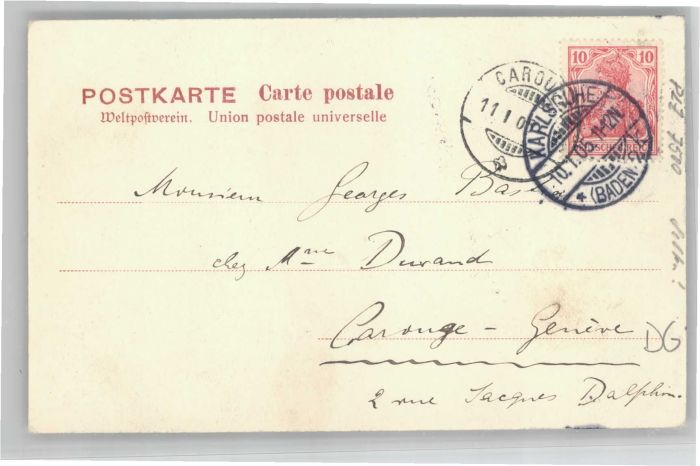 POSTKARTE Carte postale
Weltpostverein. Union postale universelle
10 10
CAROU
11. I 0
KARLSRUHE
10.1.05. 11-12N
* (BADEN) 2
Monsieur Georges
chez Mme Durand
Carouge - Genève
2 rue Jacques Dalphin.
DG